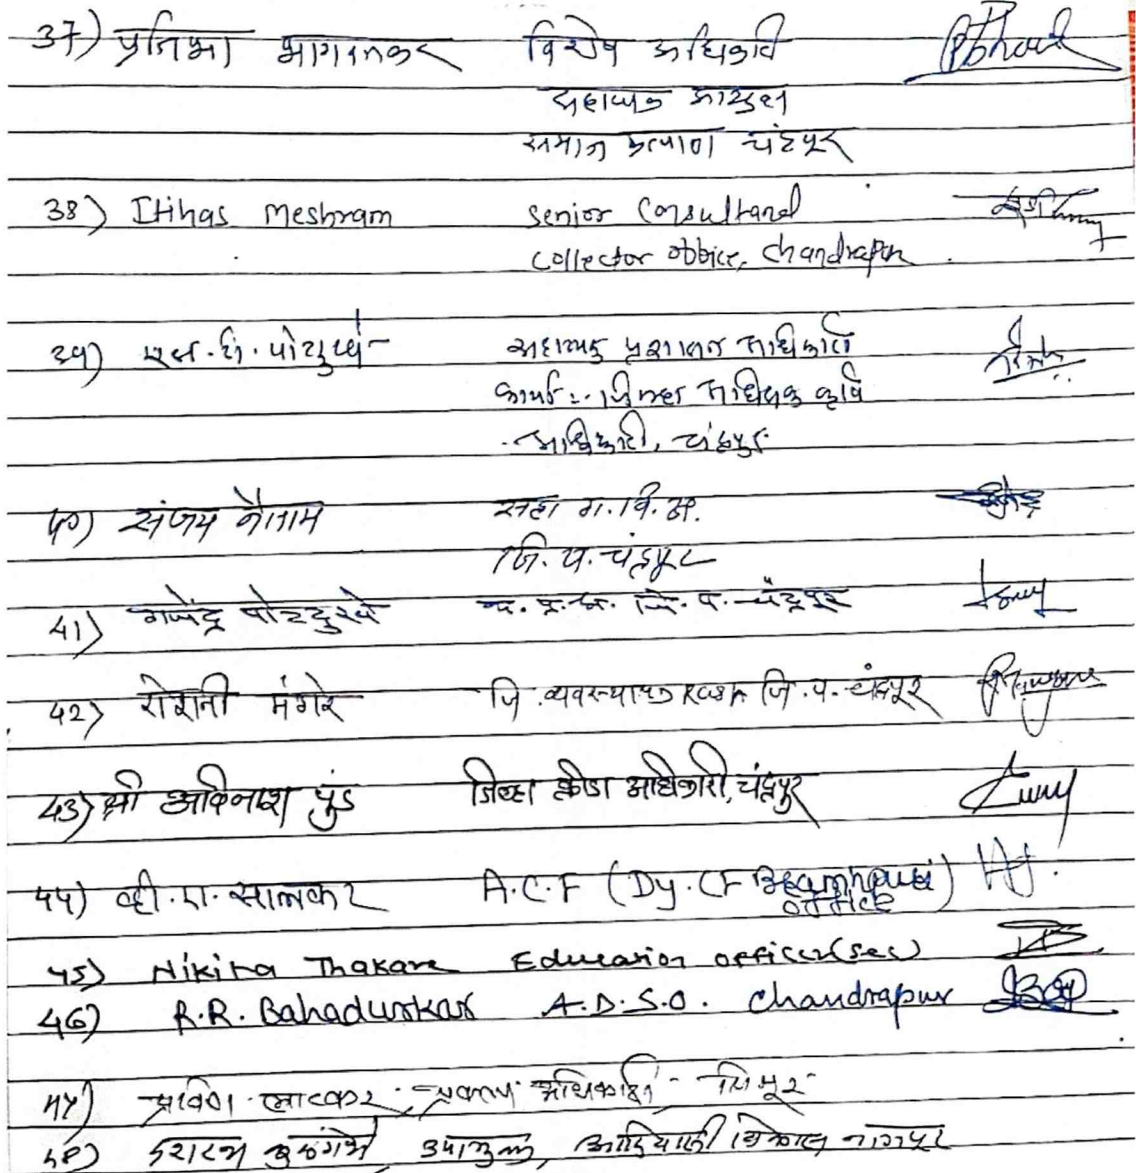 37) प्रतिभा भागवतकर विशेष अधिकारी
सहाय्यक आयुक्त
समाज कल्याण चंद्रपूर
38) Itihas Meshram Senior Consultant
collector office, Chandrapur
39) एस. पी. सहाय्यक प्रशासन अधिकारी
कार्या. जिल्हा अधिक्षक कृषि
अधिकारी, चंद्रपुर
40) संजय नैताम सहा ग.वि.अ.
जि. प. चंद्रपूर
41) गजेंद्र पोटदुखे जि. प. चंद्रपूर
42) रोशनी मंगरे जि. व्यवस्थापक जि. प. चंद्रपूर
43) श्री अविनाश पुंड जिल्हा क्रीडा अधिकारी, चंद्रपुर
44) व्ही. ए. सालकर A.C.F (Dy. CF office)
45) Nikita Thakare Education officer (sec)
46) R.R. Bahadurkar A.D.S.O. Chandrapur
47) प्रविण लाटकर, प्रकल्प अधिकारी - चिमूर
48) उपायुक्त, आदिवासी विकास नागपूर